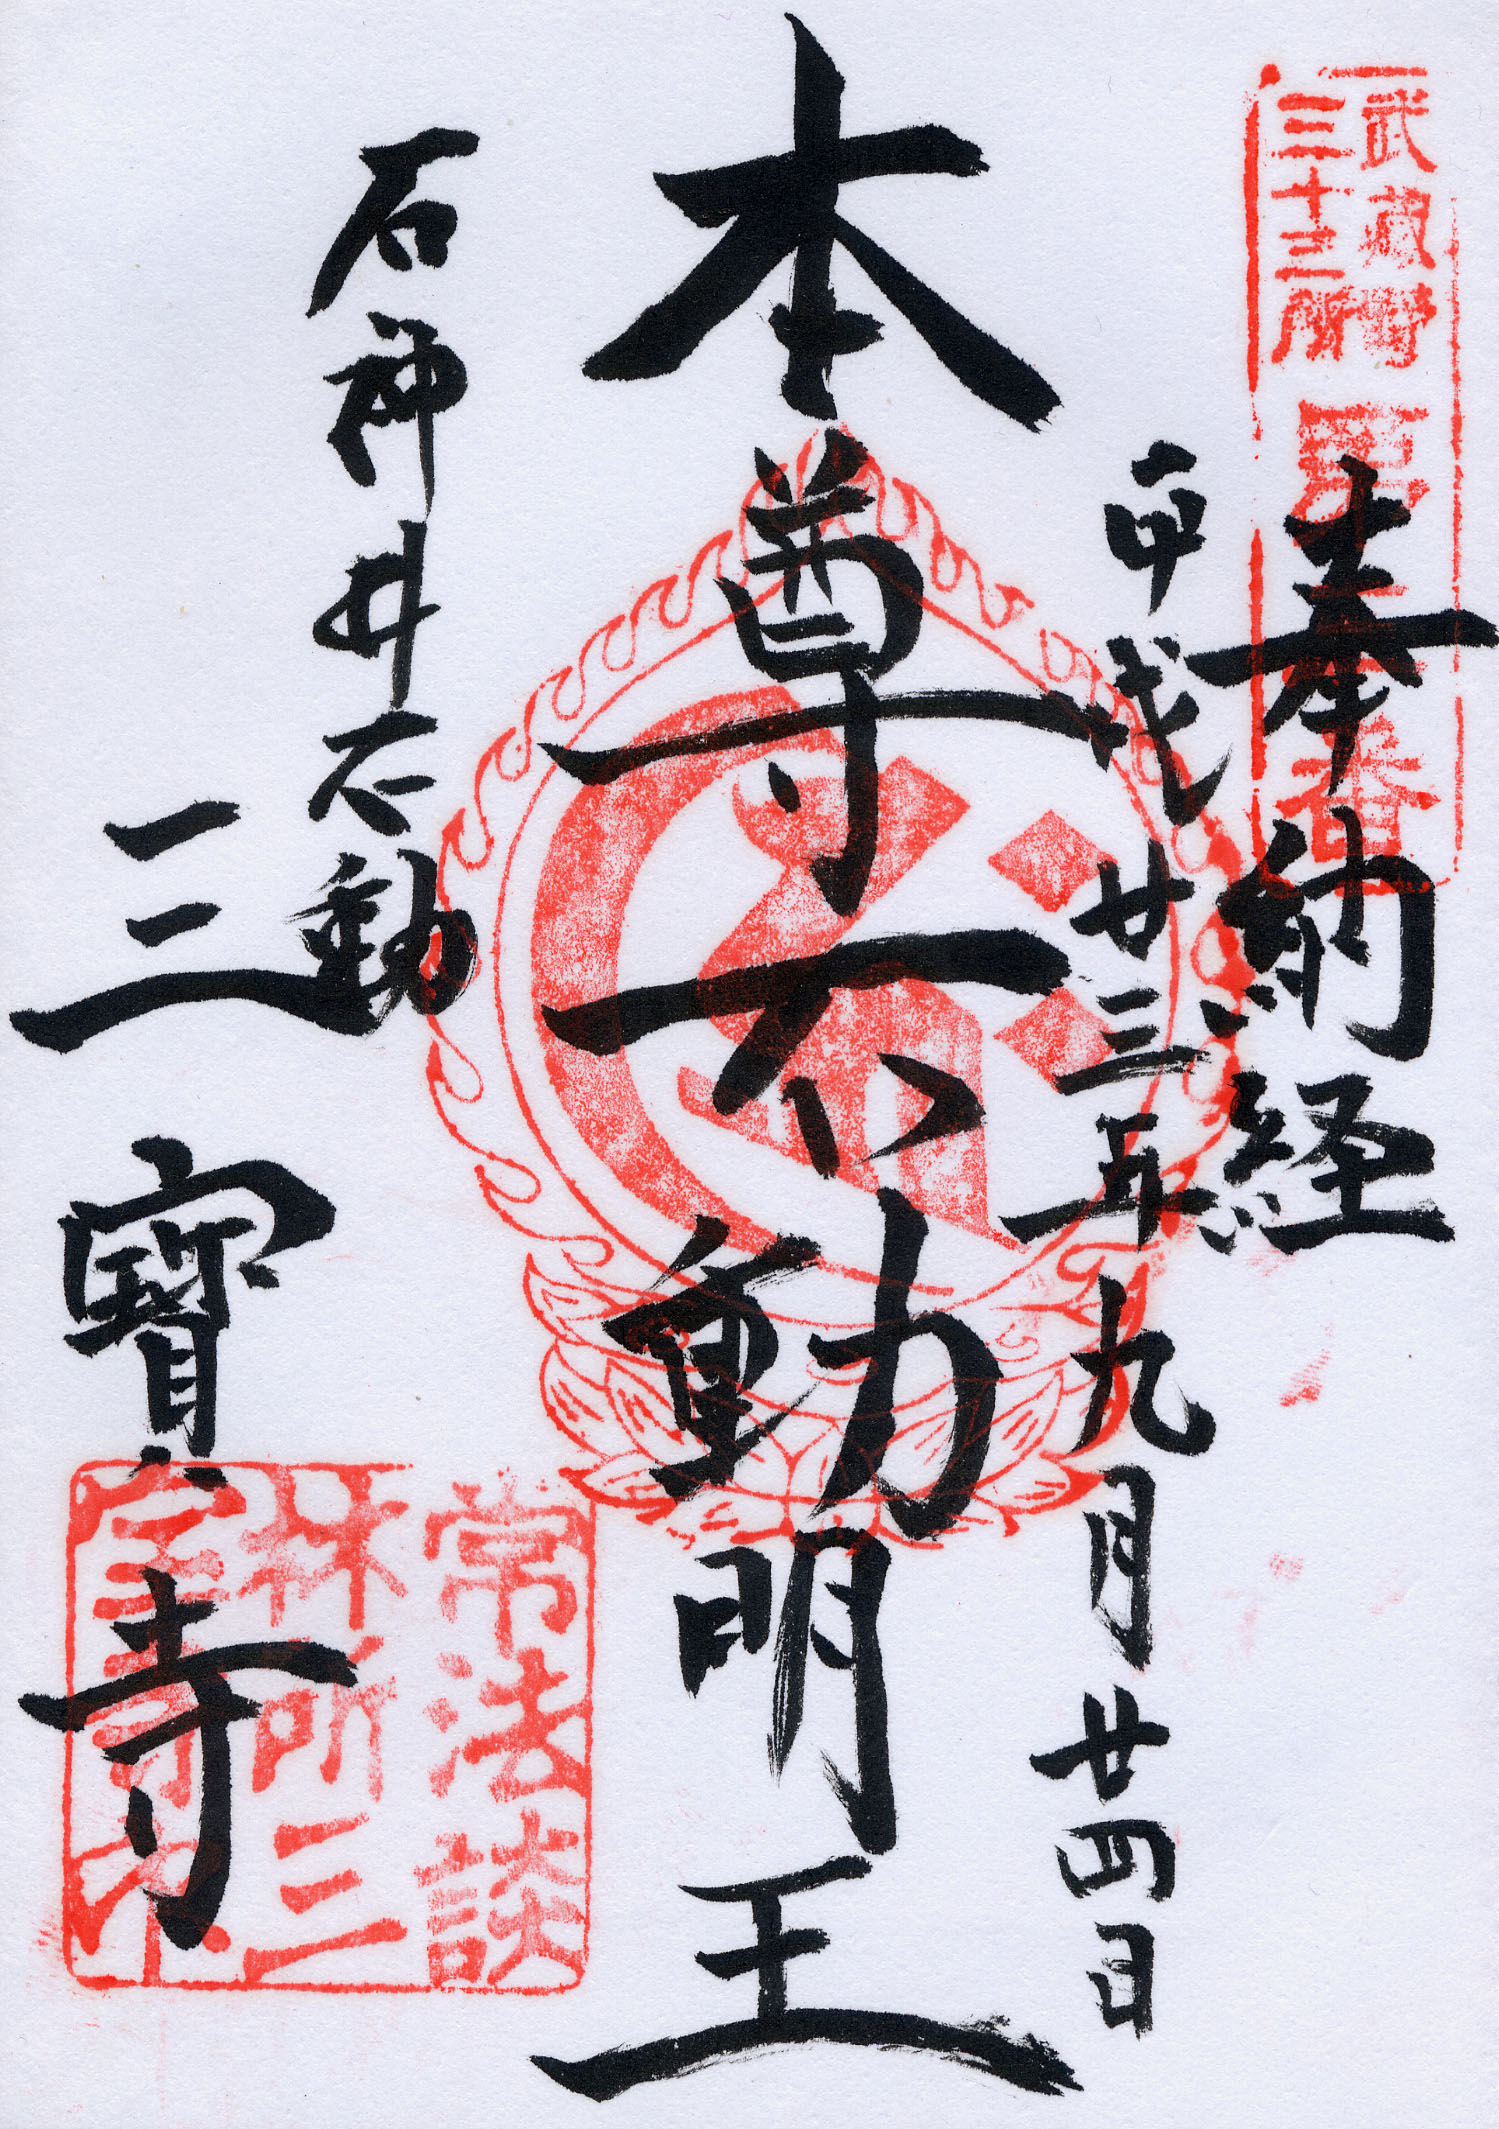 武蔵野
三十三所
第三番
奉納経
平成廿三年九月廿四日
本尊不動明王
石神井不動
三寳寺
常法談
林所三
宝寺印